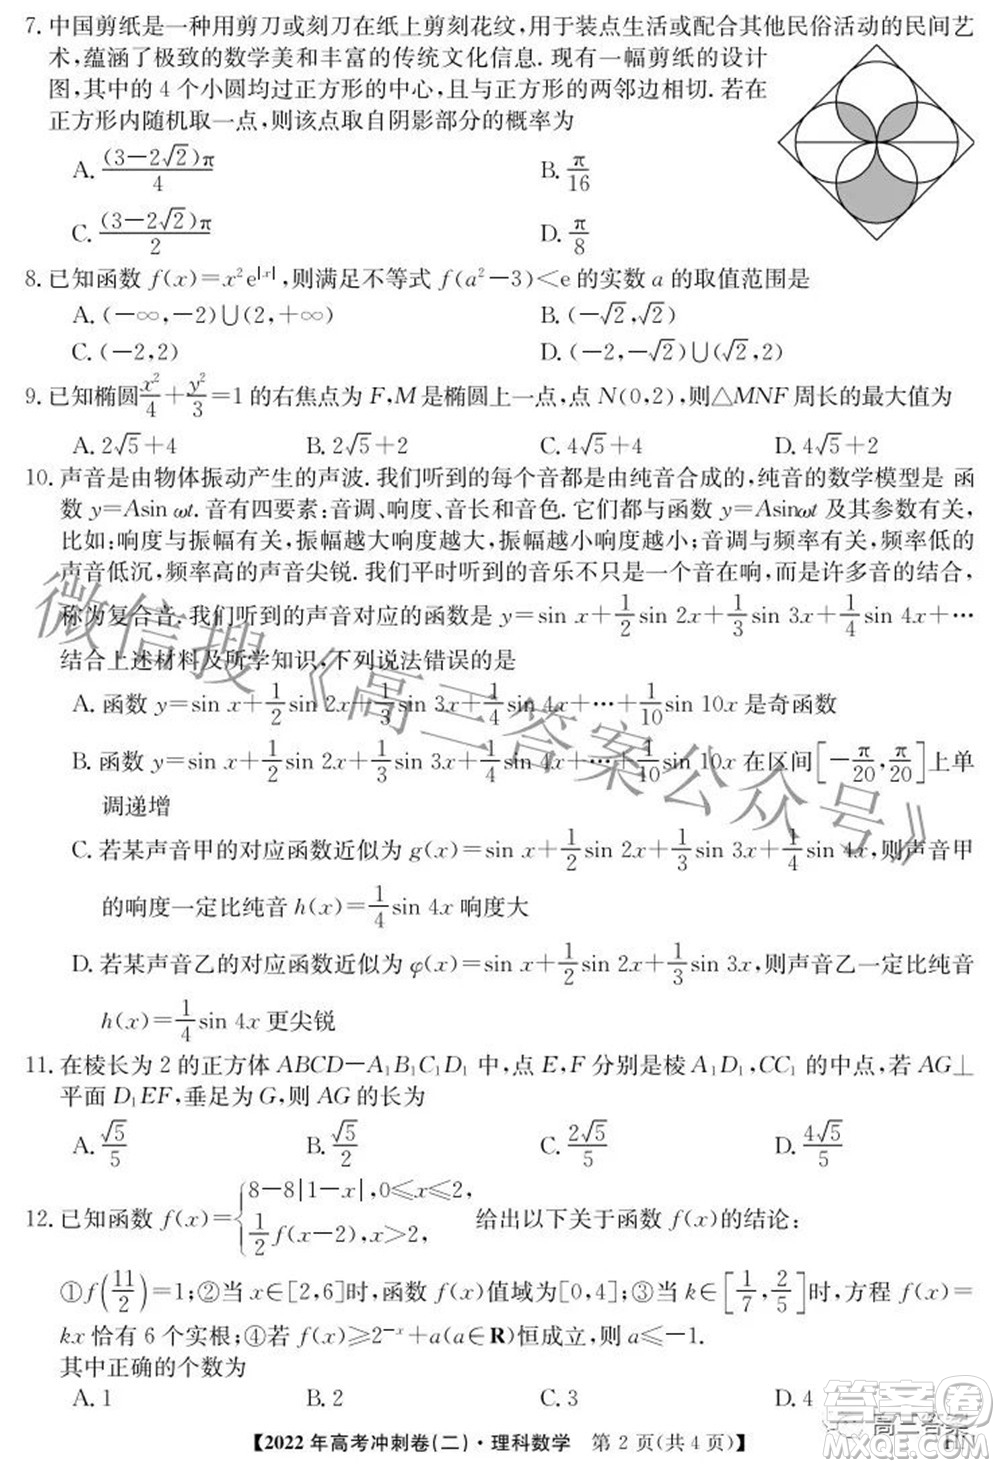 7. 中国剪纸是一种用剪刀或刻刀在纸上剪刻花纹,用于装点生活或配合其他民俗活动的民间艺
术,蕴涵了极致的数学美和丰富的传统文化信息. 现有一幅剪纸的设计
图,其中的 4 个小圆均过正方形的中心,且与正方形的两邻边相切. 若在
正方形内随机取一点,则该点取自阴影部分的概率为
A. (3-2√2)π/4 B. π/16
C. (3-2√2)π/2 D. π/8
8. 已知函数 f(x)=x²e^|x|,则满足不等式 f(a²-3)<e 的实数 a 的取值范围是
A. (-∞,-2)∪(2,+∞) B. (-√2,√2)
C. (-2,2) D. (-2,-√2)∪(√2,2)
9. 已知椭圆 x²/4+y²/3=1 的右焦点为 F,M 是椭圆上一点,点 N(0,2),则△MNF 周长的最大值为
A. 2√5+4 B. 2√5+2 C. 4√5+4 D. 4√5+2
10. 声音是由物体振动产生的声波. 我们听到的每个音都是由纯音合成的,纯音的数学模型是 函
数 y=Asin ωt. 音有四要素:音调、响度、音长和音色. 它们都与函数 y=Asinωt 及其参数有关,
比如:响度与振幅有关,振幅越大响度越大,振幅越小响度越小;音调与频率有关,频率低的
声音低沉,频率高的声音尖锐. 我们平时听到的音乐不只是一个音在响,而是许多音的结合,
称为复合音. 我们听到的声音对应的函数是 y=sin x+1/2 sin 2x+1/3 sin 3x+1/4 sin 4x+…
结合上述材料及所学知识,下列说法错误的是
A. 函数 y=sin x+1/2 sin 2x+1/3 sin 3x+1/4 sin 4x+…+1/10 sin 10x 是奇函数
B. 函数 y=sin x+1/2 sin 2x+1/3 sin 3x+1/4 sin 4x+…+1/10 sin 10x 在区间[-π/20,π/20]上单
调递增
C. 若某声音甲的对应函数近似为 g(x)=sin x+1/2 sin 2x+1/3 sin 3x+1/4 sin 4x,则声音甲
的响度一定比纯音 h(x)=1/4 sin 4x 响度大
D. 若某声音乙的对应函数近似为 φ(x)=sin x+1/2 sin 2x+1/3 sin 3x,则声音乙一定比纯音
h(x)=1/4 sin 4x 更尖锐
11. 在棱长为 2 的正方体 ABCD-A₁B₁C₁D₁ 中,点 E,F 分别是棱 A₁D₁,CC₁ 的中点,若 AG⊥
平面 D₁EF,垂足为 G,则 AG 的长为
A. √5/5 B. √5/2 C. 2√5/5 D. 4√5/5
12. 已知函数 f(x)={8-8|1-x|,0≤x≤2, 1/2 f(x-2),x>2, 给出以下关于函数 f(x)的结论:
①f(11/2)=1;②当 x∈[2,6]时,函数 f(x)值域为[0,4];③当 k∈[1/7,2/5]时,方程 f(x)=
kx 恰有 6 个实根;④若 f(x)≥2^-x+a(a∈R)恒成立,则 a≤-1.
其中正确的个数为
A. 1 B. 2 C. 3 D. 4
【2022 年高考冲刺卷(二)·理科数学 第 2 页(共 4 页)】 HN
微信搜《高三答案公众号》
答案卷
高三答案